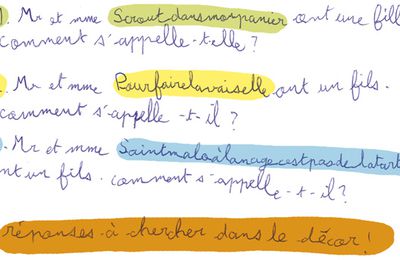 1). Mr et mme Scroutdansmonpanier ont une fill
comment s'appelle-t-elle ?
. Mr et mme Pourfairelavaiselle ont un fils.
comment s'appelle-t-il ?
). Mr et mme Saintmaloàlanagecestpasdelatart
nt un fils. comment s'appelle-t-il ?
réponses à chercher dans le décor !